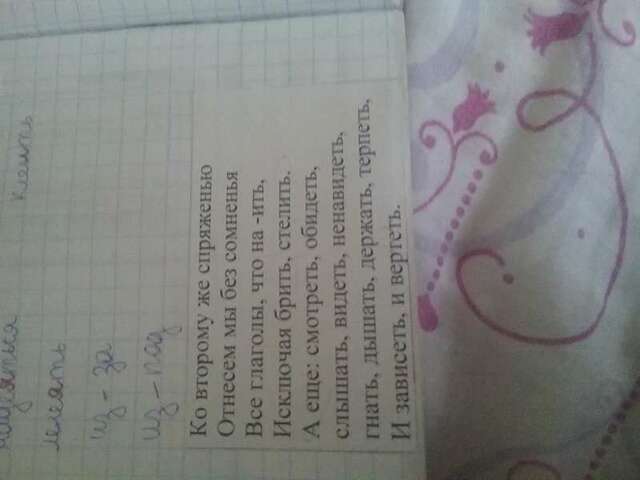 клеить
менять
из - за
из - под
Ко второму же спряженью
Отнесем мы без сомненья
Все глаголы, что на -ить,
Исключая брить, стелить.
А еще: смотреть, обидеть,
слышать, видеть, ненавидеть,
гнать, дышать, держать, терпеть,
И зависеть, и вертеть.